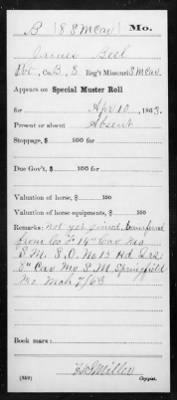 B | 8 S M Cav | Mo.
James Bell
Pvt., Co. B, 8 Reg't Missouri S M Cav.
Appears on Special Muster Roll
for Apr 10, 1863.
Present or absent Absent
Stoppage, $ 100 for
Due Gov't, $ 100 for
Valuation of horse, $ 100
Valuation of horse equipments, $ 100
Remarks: Not yet joined, transferred
from Co F. 14" Cav Mo
S.M. S.O. No 13 Hd Qrs
8" Cav Mo S.M. Springfield
Mo Mch 7/63
Book mark:
Miller
(859) Copyist.